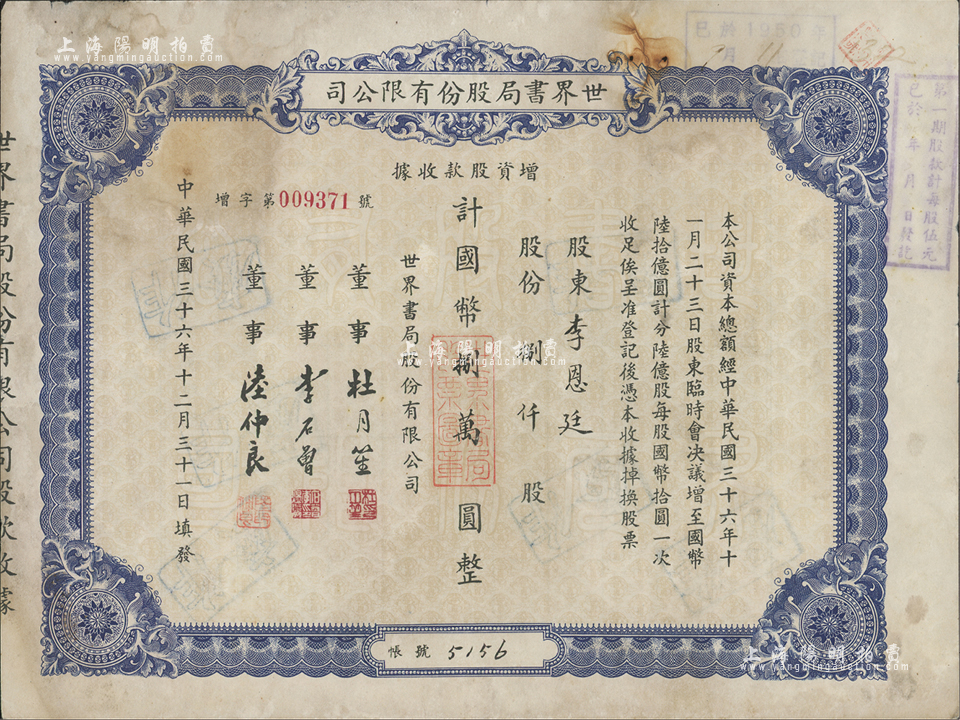 世界書局股份有限公司
增資股款收據
增字第009371號
本公司資本總額經中華民國三十六年十
一月二十三日股東臨時會決議增至國幣
陸拾億圓計分陸億股每股國幣拾圓一次
收足俟呈准登記後憑本收據掉換股票
股東李恩廷
股份捌仟股
計國幣捌萬圓整
世界書局股份有限公司
董事杜月笙
董事李石曾
董事陸仲良
中華民國三十六年十二月三十一日填發
帳號5156
世界書局股份有限公司股款收據
已於1950年
月11
第一期股款計每股伍元
已於年月日發訖
上海陽明拍賣
www.yangmingauction.com
上海陽明拍賣
www.yangmingauction.com
上海陽明拍賣
www.yangmingauction.com
上海陽明拍賣
www.yangmingauction.com
上海陽明拍賣
www.yangmingauction.com